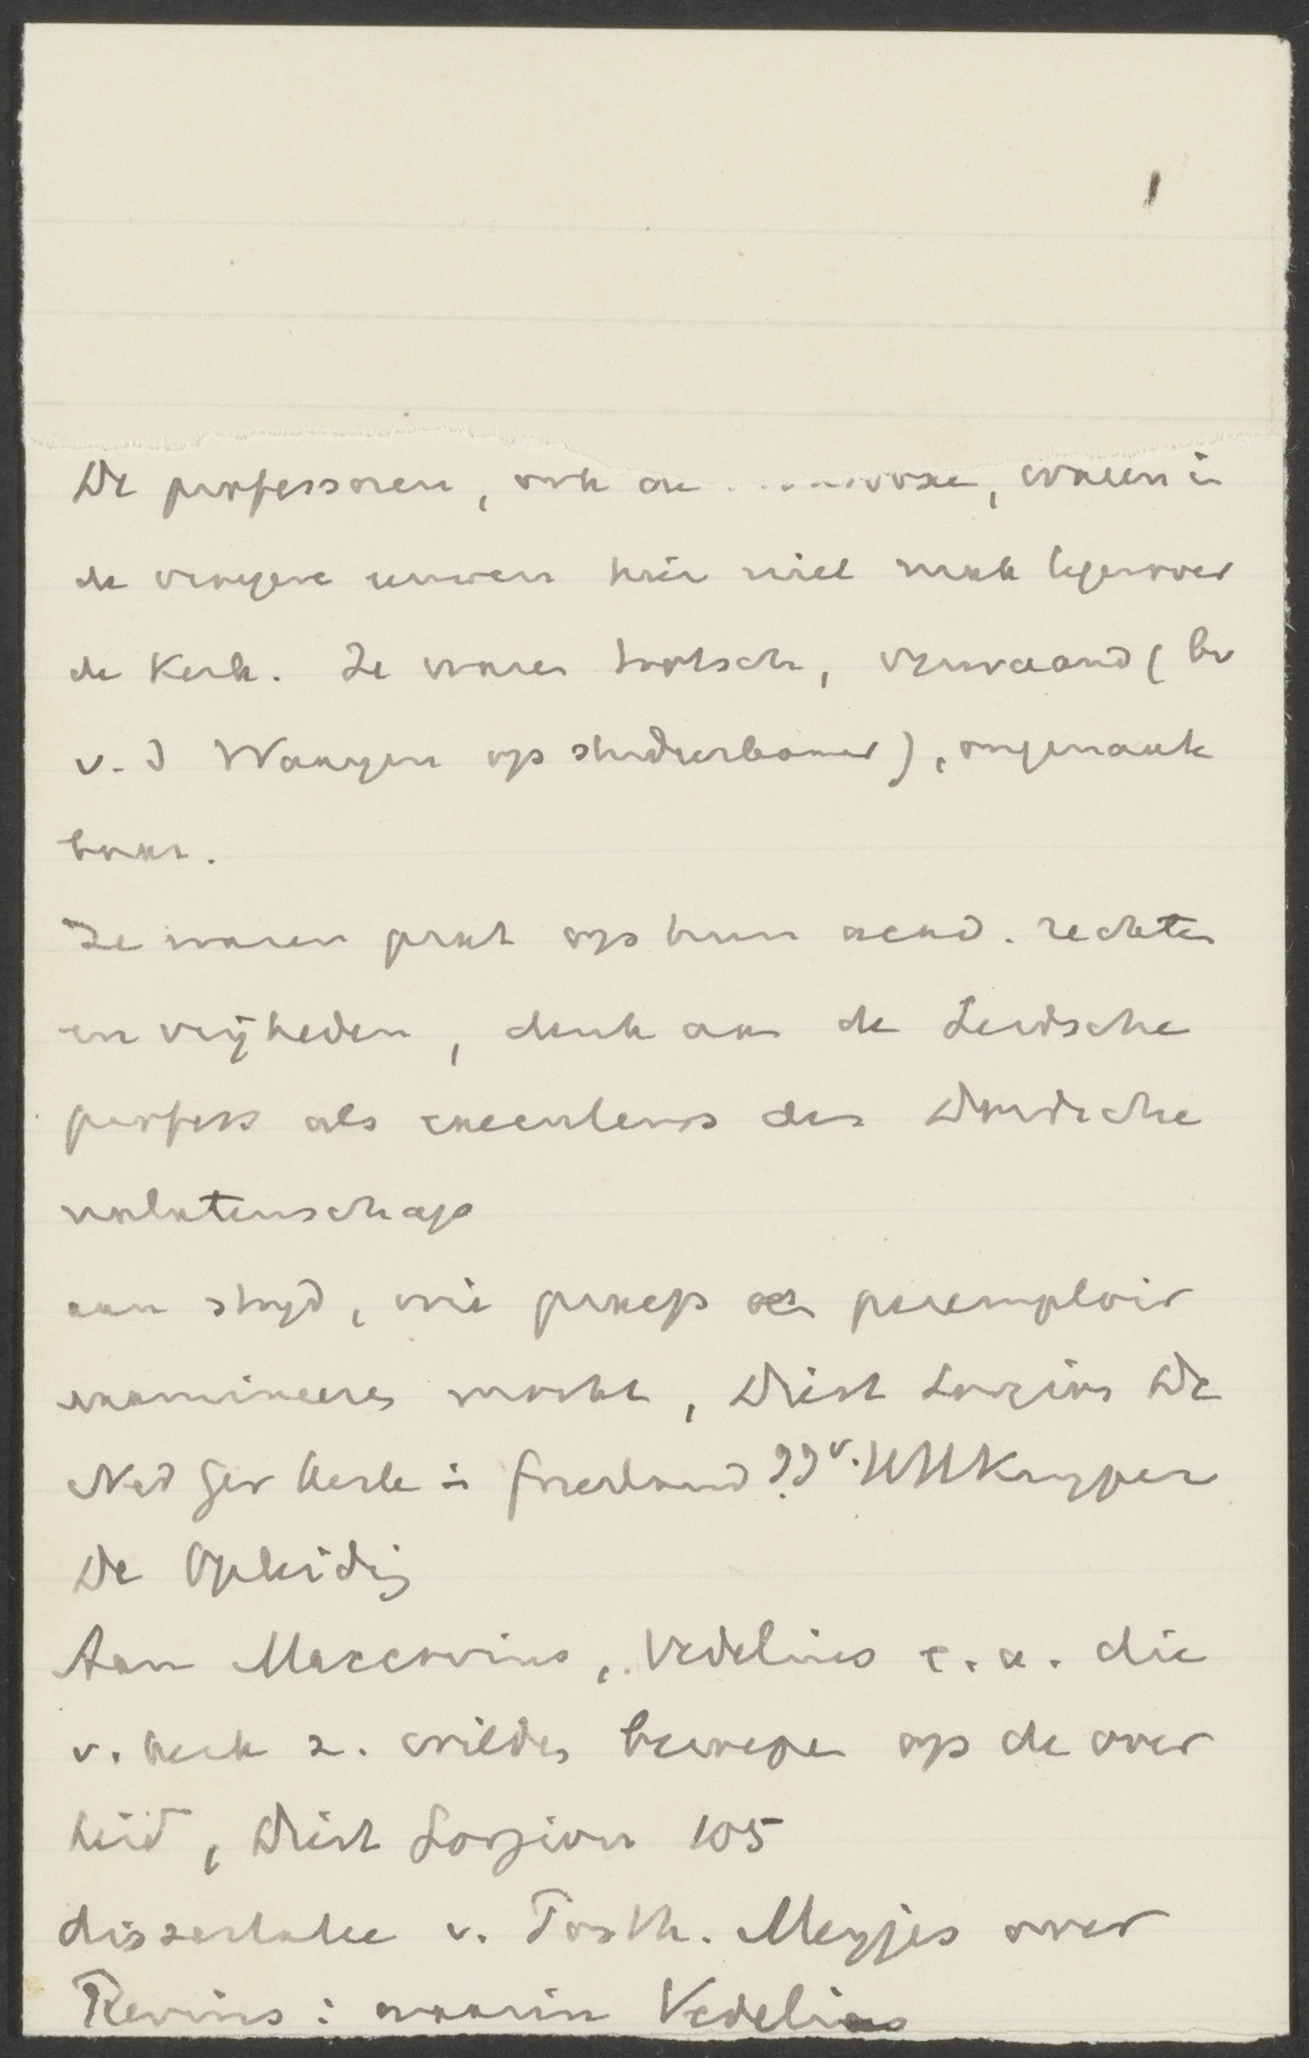 1
De professoren, ook de orthodoxe, waren in
de vroegere eeuwen hier niet mak tegenover
de Kerk. Ze waren trotsch, verwaand (bv
v. d Waeyen op studeerkamer), ongenaak
baar.
Ze waren prat op hun acad. rechten
en vrijheden, denk aan de Leidsche
profess als executeurs der Dordsche
nalatenschap
aan strijd, wie praep en peremptoir
examineeren mocht, Diest Lorgion De
Ned Ger Kerk in Friesland?? v. HH Kuyper
De Opleidig
Aan Maccovius, Vedelius e.a. die
v. kerk z. wilden beroepen op de over
heid, Diest Lorgion 105
dissertatie v. Posth. Meyjes over
Revius: waarin Vedelius